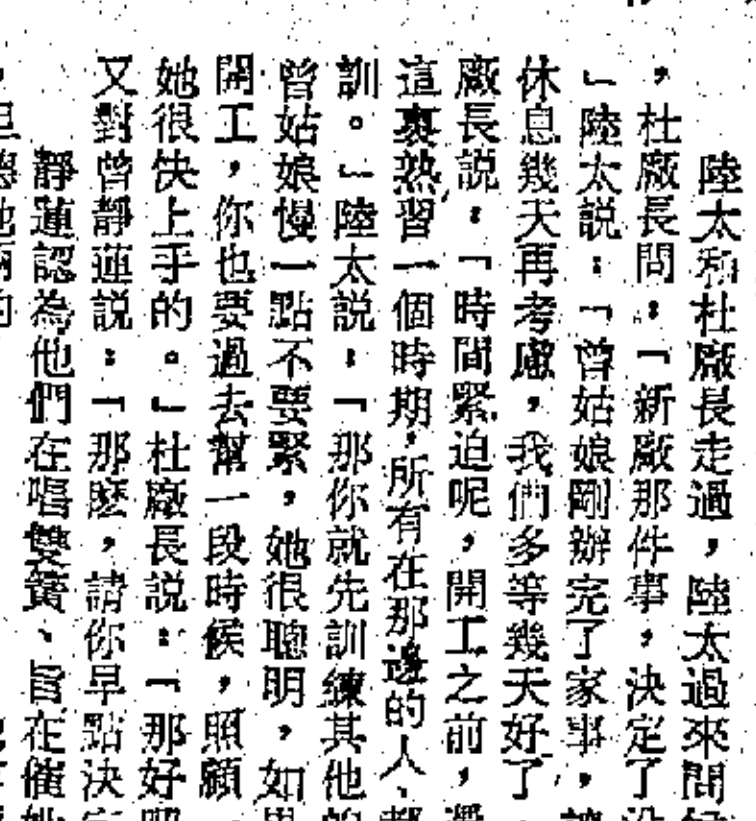 陸太和杜廠長走過，陸太過來問
，杜廠長問：「新廠那件事，決定了沒
」陸太說：「曾姑娘剛辦完了家事，讓
休息幾天再考慮，我們多等幾天好了，
廠長說：「時間緊迫呢，開工之前，還
這裏熟習一個時期，所有在那邊的人、都
訓。」陸太說：「那你就先訓練其他的
曾姑娘慢一點不要緊，她很聰明，如果
開工，你也要過去幫一段時候，照顧
她很快上手的。」杜廠長說：「那好吧
又對曾靜蓮說：「那麼，請你早點決定
靜蓮認為他們在唱雙簧、旨在催她